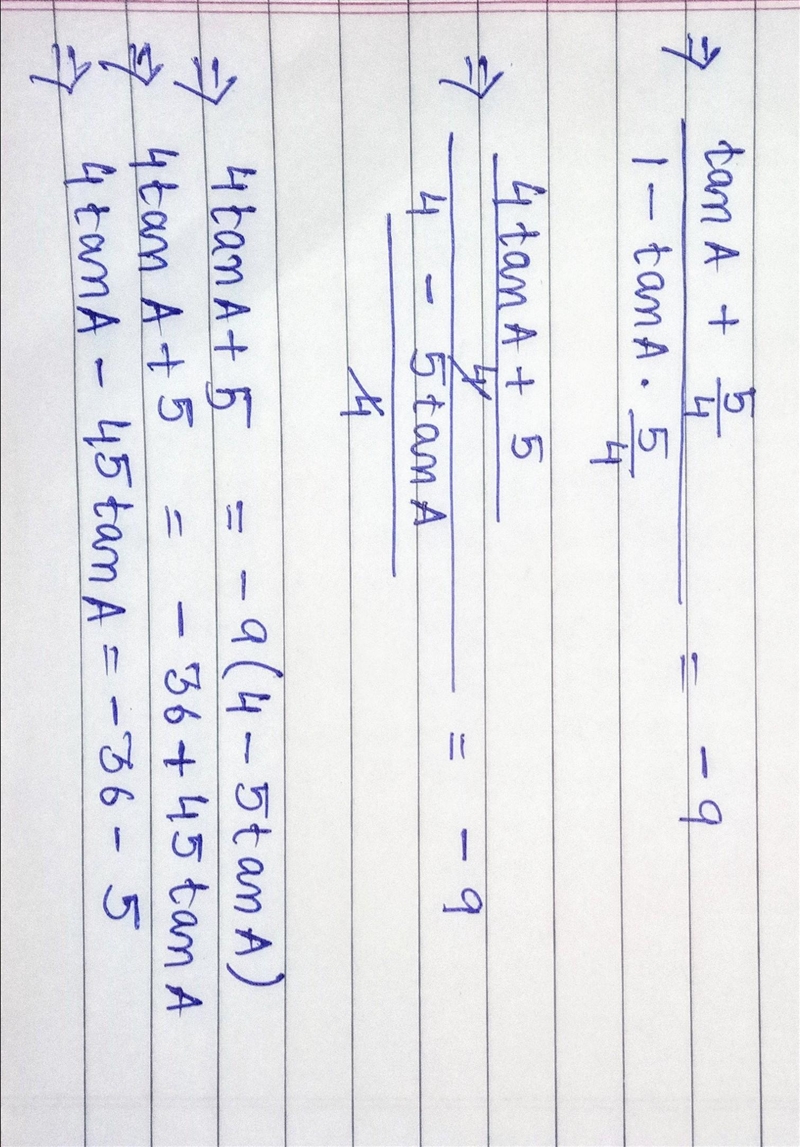 ⇒ (tan A + 5/4) / (1 - tan A · 5/4) = -9
⇒ ((4 tan A + 5) / 4) / ((4 - 5 tan A) / 4) = -9
⇒ 4 tan A + 5 = -9(4 - 5 tan A)
⇒ 4 tan A + 5 = -36 + 45 tan A
⇒ 4 tan A - 45 tan A = -36 - 5